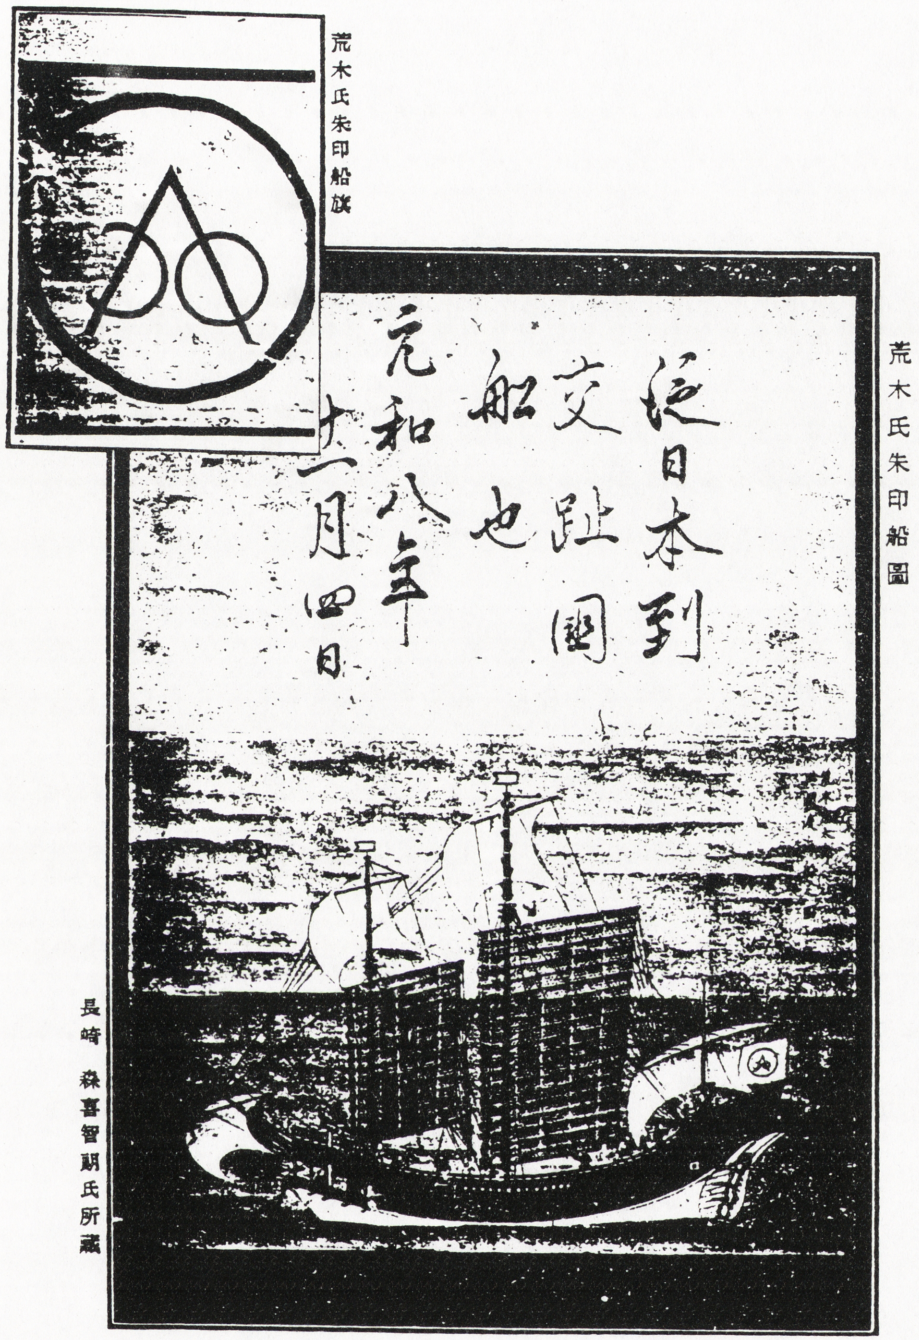 荒木氏朱印船旗
荒木氏朱印船圖
從日本到
交趾國
船也
元和八年
十一月四日
長崎 森喜智郎氏所藏